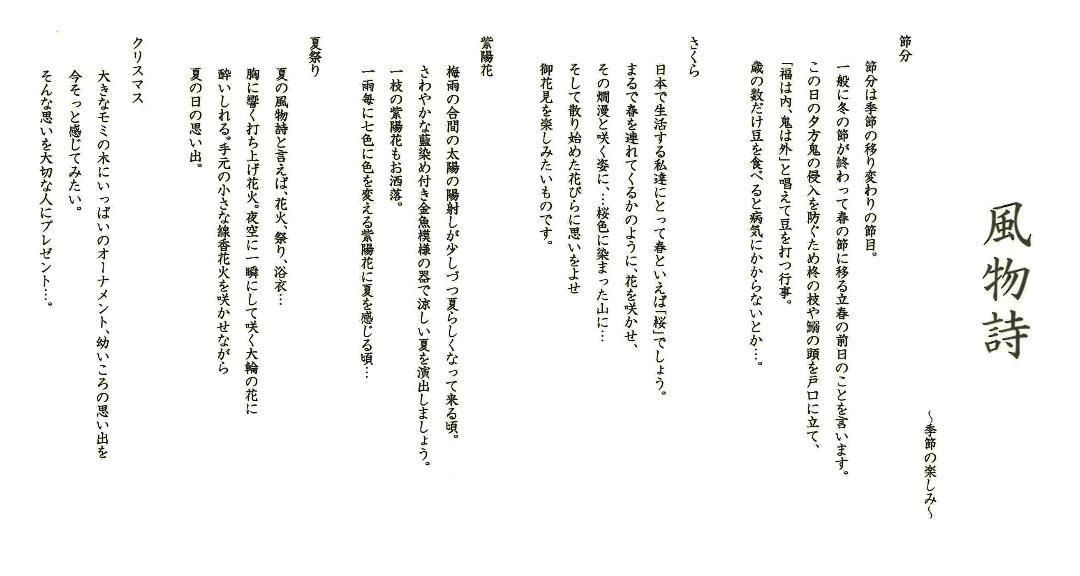 風物詩
～季節の楽しみ～
節分
節分は季節の移り変わりの節目。
一般に冬の節が終わって春の節に移る立春の前日のことを言います。
この日の夕方鬼の侵入を防ぐため柊の枝や鰯の頭を戸口に立て、
「福は内、鬼は外」と唱えて豆を打つ行事。
歳の数だけ豆を食べると病気にかからないとか…。
さくら
日本で生活する私達にとって春といえば「桜」でしょう。
まるで春を連れてくるかのように、花を咲かせ、
その爛漫と咲く姿に、…桜色に染まった山に…
そして散り始めた花びらに思いをよせ
御花見を楽しみたいものです。
紫陽花
梅雨の合間の太陽の陽射しが少しづつ夏らしくなって来る頃。
さわやかな藍染め付き金魚模様の器で涼しい夏を演出しましょう。
一枝の紫陽花もお洒落。
一雨毎に七色に色を変える紫陽花に夏を感じる頃…
夏祭り
夏の風物詩と言えば、花火、祭り、浴衣…
胸に響く打ち上げ花火。夜空に一瞬にして咲く大輪の花に
酔いしれる。手元の小さな線香花火を咲かせながら
夏の日の思い出。
クリスマス
大きなモミの木にいっぱいのオーナメント、幼いころの思い出を
今そっと感じてみたい。
そんな思いを大切な人にプレゼント…。